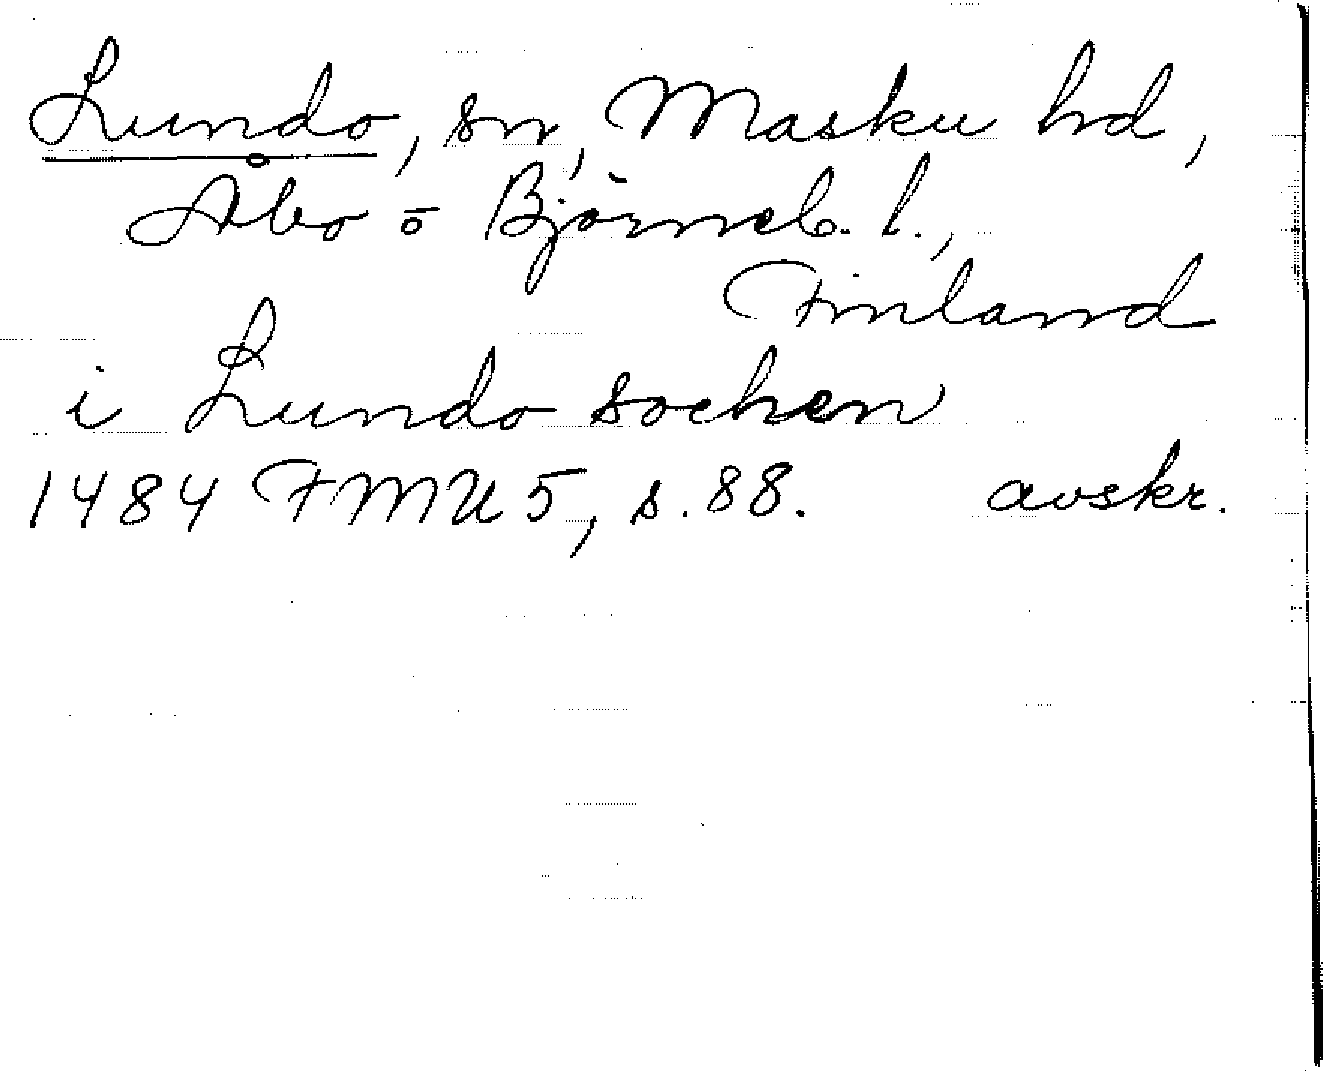 Lundo, sn, Masku hd,
Åbo ō Björneb. l.,
Finland
i Lundo sochen
1484 FMU 5, s. 88. avskr.